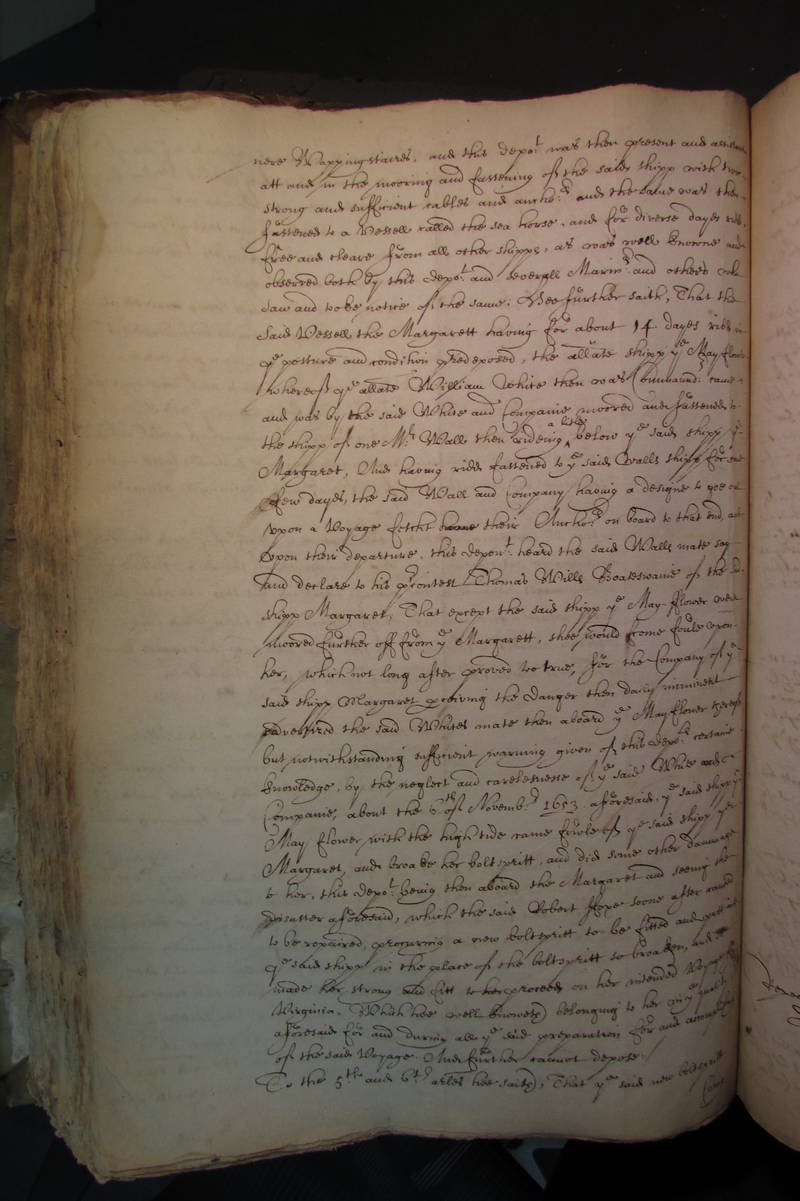 nere Wapping staires, and this depo:t was then present and assistant
att and in the mooring and fastening of the said shipp with two
strong and sufficient cables and anch:rs and the same was then
fastened to a Vessell called the sea horse, and for diverse dayes ride
free and cleare from all other shipps, as was well knowne and
observed both by this depo:t and severall Marin:rs and others who
saw and tooke notice of the same; Hee further saith, That the
said Vessell the Margarett having for about 14 dayes ridd in
ye posture and condition predeposed, the allate shipp ye May flower
whereof ye allate William White then was Commaund:r came
and was by the said White and Companie moored and fastened to
the shipp of one Mr Wall then rideing a little below ye said shipp ye
Margaret, And having ridd fastened to ye said Walls shipp for some
few dayes, the said Wall and Company having a designe to goe on
upon a Voyage fetcht their Anch:rs on board to that end, and
upon their departure, this depon:t heard the said Walls mate say
and declare to his precontest Thomas Wills Boateswaine of the sd
shipp Margaret, That except the said shipp ye May-flower were
moored further off from ye Margarett, shee would come foule upon
her, which not long after proved too true, for the Company of ye
said shipp Margaret perceiving the danger then daily imminent
advertized the said Whites mate then aboard ye May flower thereof
but notwithstanding sufficient warning given of this depo:ts certaine
knowledge, by the neglect and carelesnesse of ye said White and
Companie, about the 6th of Novemb:r 1653 aforesaid, ye said shipp ye
May flower with the high tide came foule of ye said shipp ye
Margaret, and broake her boltspritt, and did some other dammage
to her, this depo:t being then aboard the Margaret and seeing the
disaster aforesaid, which the said Robert Hope soone after caused
to be repaired, procuring a new boltspritt to be fitted and putt into
ye said shipp in the place of the boltspritt so broaken, and
made her strong and fitt to proceed on her intended Voyage
Virginia. Which hee well knoweth belonging to her in ye quality
aforesaid for and during all ye said preparation for and
of the said Voyage. And further cannot depose.
To the 5th and 6th arles hee saith, That ye said new boltspritt